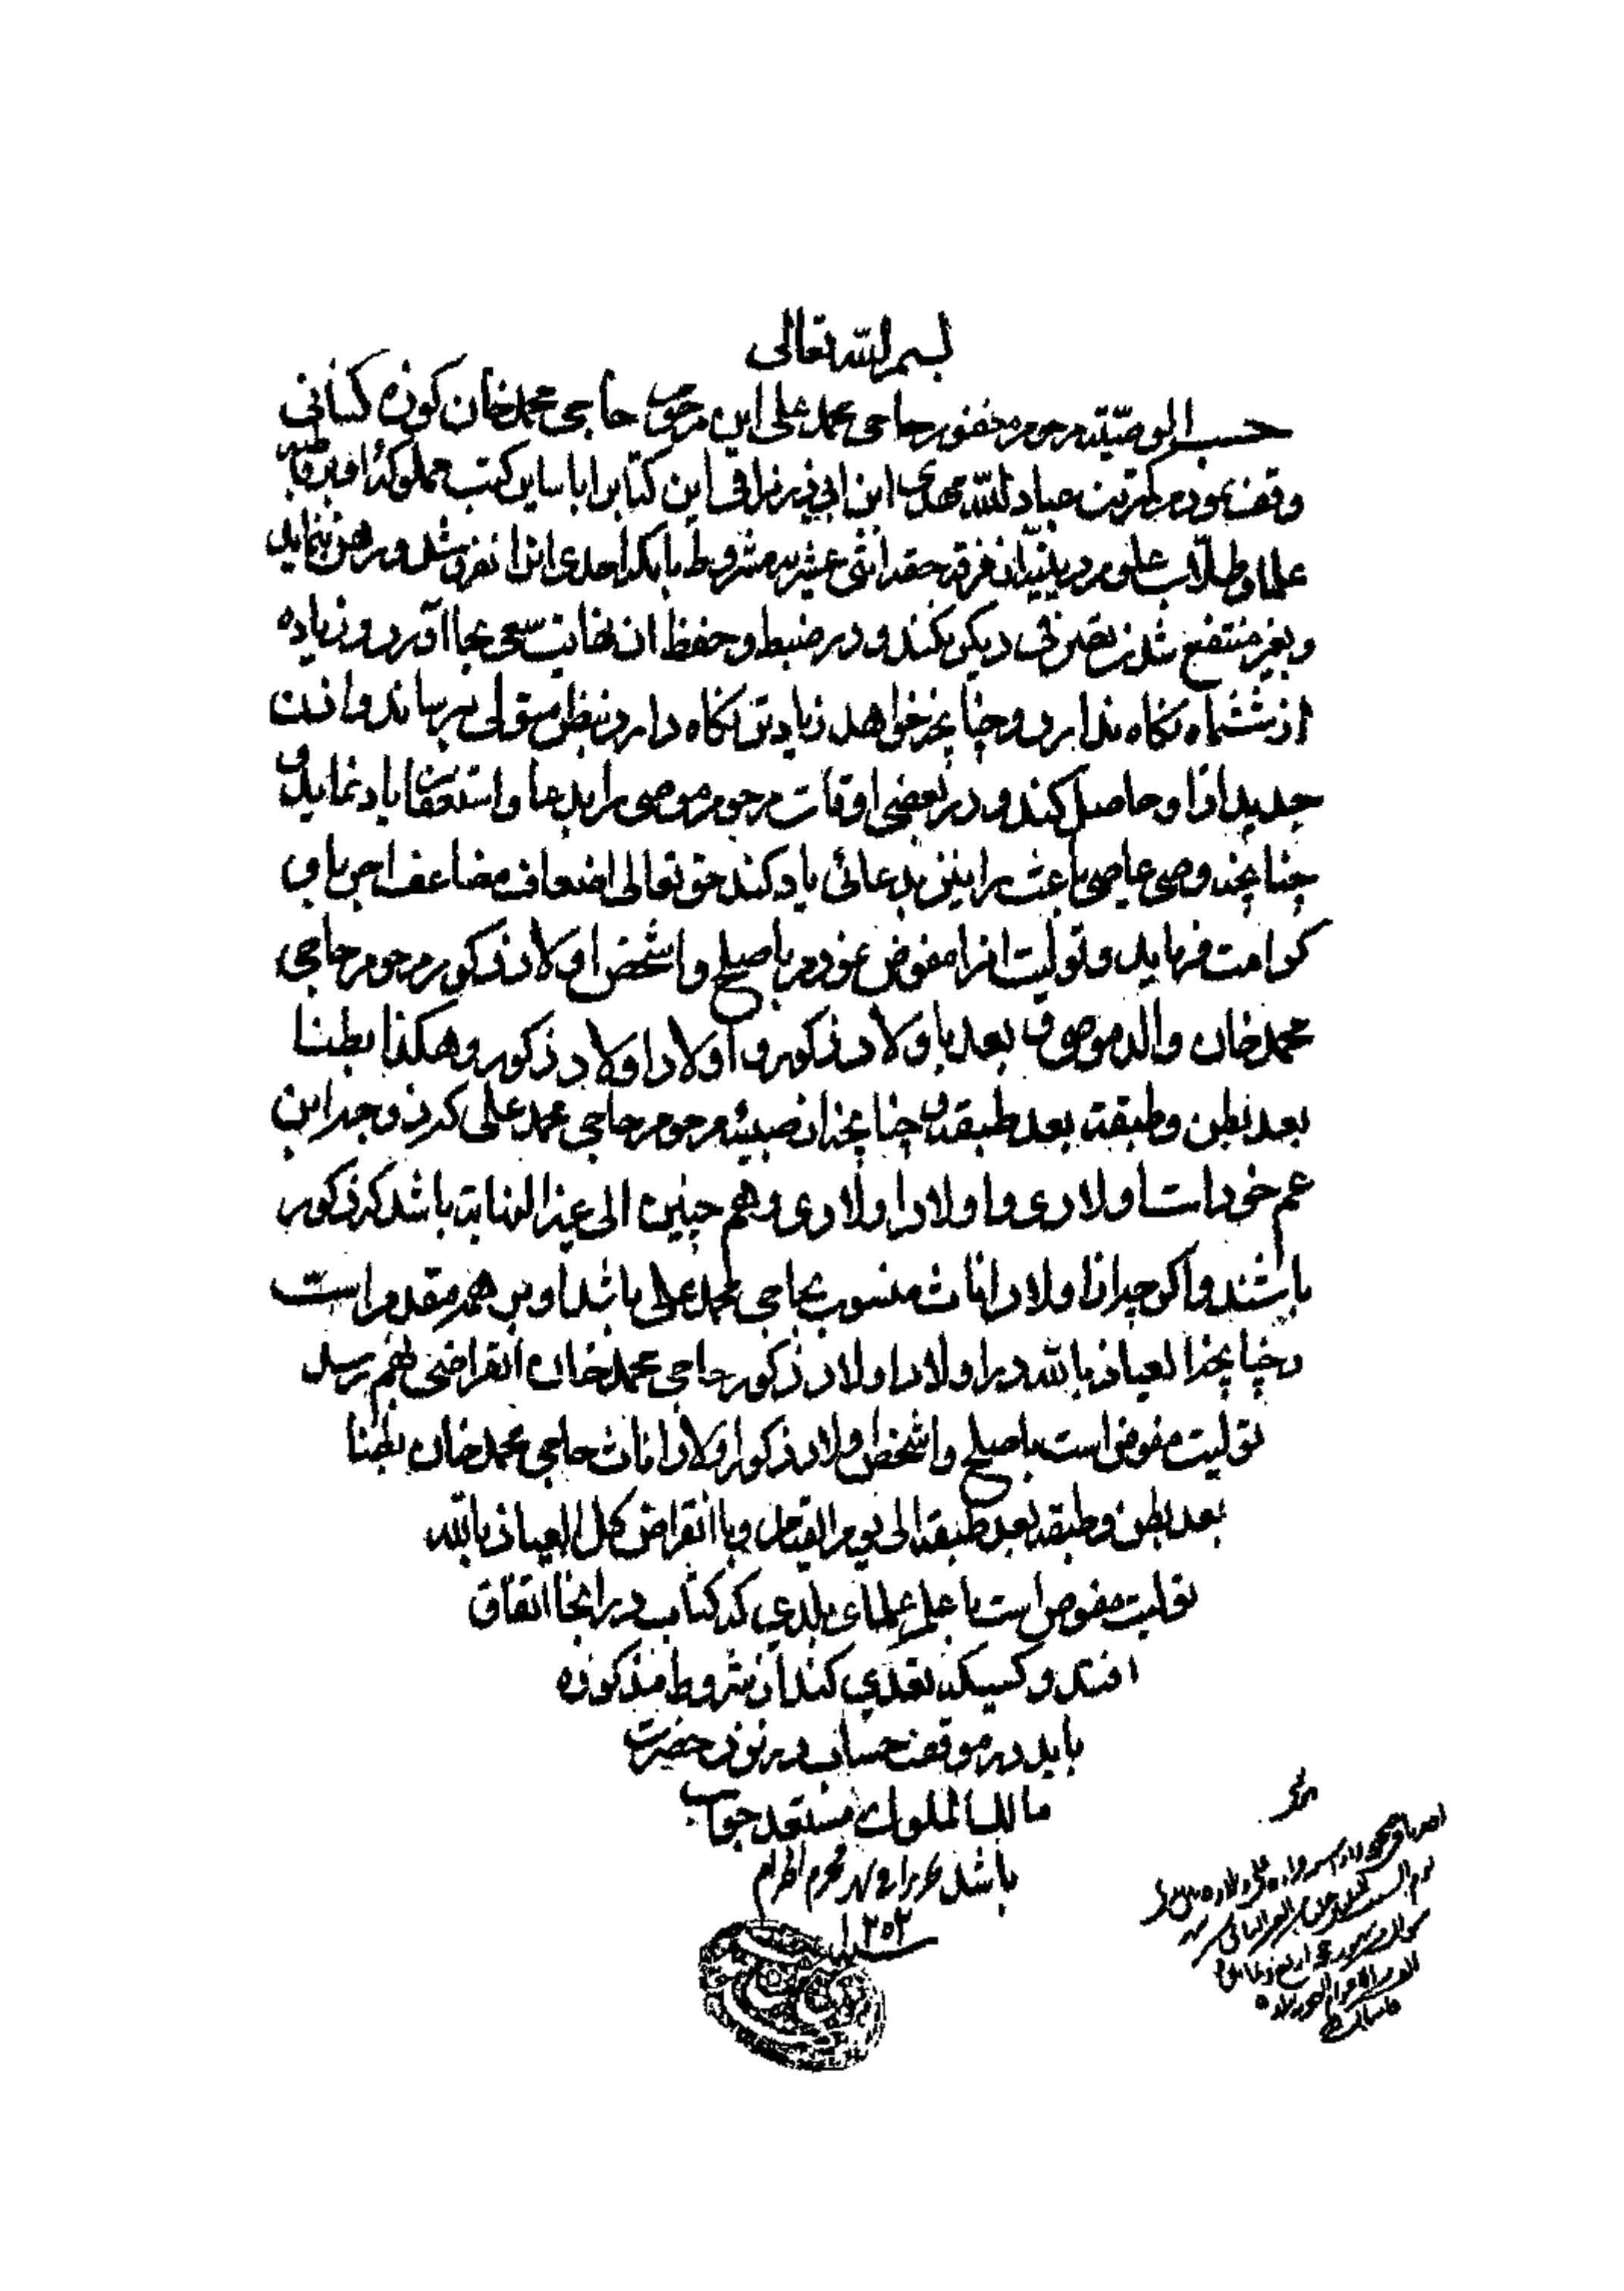 بسم الله تعالی
حسب الوصیّته مرحوم مغفور حاجی محمد علی ابن مرحوم حاجی محمدخان کوزه کنانی
وقف نمودم کمترین عباد الله مهدی ابن ابی ذر نراقی این کتابرا با سایر کتب مملوکه او بر قاطبه
علما و طلّاب علوم دینیّه از فرقه حقه اثنی عشریه مشروط بانکه احدی انرا نفروشد و رهن ننماید
و بغیر منتفع شدن تصرفی دیگر نکند و در ضبط و حفظ ان نهایت سعی بجا آورد و زیاده
از ششماه نگاه ندارد و چنانچه خواهد زیادتر نگاه دارد بنظر متولی برساند و اذن
جدید از او حاصل کند و در بعضی اوقات مرحوم موصی را بدعا و استغفار یاد نماید و
چنانچه وصی عاصی باعث را نیز بدعائی یاد کند حق تعالی اضعاف مضاعف اجر باو
کرامت فرماید و تولیت انرا مفوض نمودم باصلح و اشخص اولاد ذکور مرحوم حاجی
محمدخان والد موصوف بعد باولاد ذکور و اولاد اولاد ذکور و هکذا بطنا
بعد بطن و طبقة بعد طبقة و چنانچه از صبیه مرحوم حاجی محمد علی که زوجه ابن
عم خود است اولادی و اولاد اولادی و هم چنین الی غیر النهایة باشد که ذکور
باشند و اگر چه از اولاد اناث منسوب بحاجی محمد علی باشد او بر همه مقدم است
و چنانچه العیاذ بالله در اولاد اولاد ذکور حاجی محمدخان انقراضی بهم رسد
تولیت مفوض است باصلح و اشخص اولاد ذکور اولاد اناث حاجی محمدخان بطنا
بعد بطن و طبقة بعد طبقة الی یوم القیمة و با انقراض کل العیاذ بالله
تولیت مفوض است باعلم علمای بلدی که کتاب در انجا اتفاق
افتد و کسیکه تعدی کند از شروط مذکوره
باید در موقف حساب در نزد حضرت
مالک الملوک مستعد جواب
باشد تحریرا فی شهر محرم الحرام
سنه ۱۲۵۲